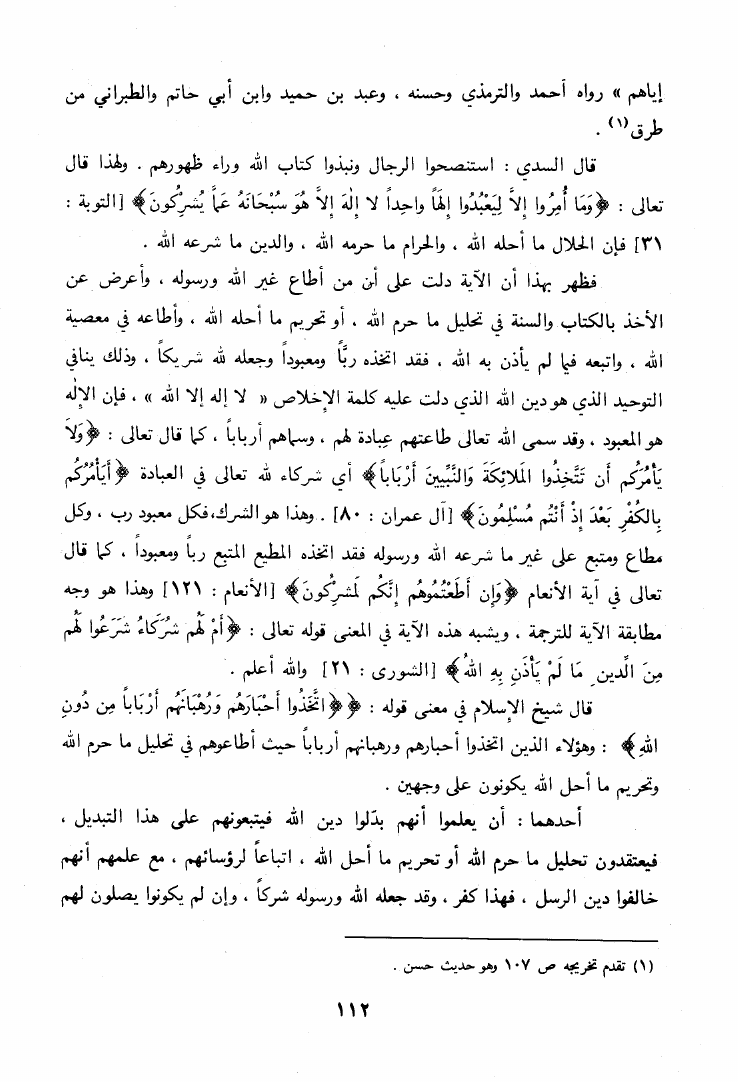 إياهم » رواه أحمد والترمذي وحسنه ، وعبد بن حميد وابن أبي حاتم والطبراني من
طرق(١) .
قال السدي : استنصحوا الرجال ونبذوا كتاب الله وراء ظهورهم . ولهذا قال
تعالى : ﴿وَمَا أُمِرُوا إِلاَّ لِيَعْبُدُوا إِلهَاً واحِداً لا إِلٰهَ إِلاَّ هُوَ سُبْحَانَهُ عَمَّا يُشرِكُونَ﴾ [التوبة :
٣١] فإن الحلال ما أحله الله ، والحرام ما حرمه الله ، والدين ما شرعه الله .
فظهر بهذا أن الآية دلت على أن من أطاع غير الله ورسوله ، وأعرض عن
الأخذ بالكتاب والسنة في تحليل ما حرم الله ، أو تحريم ما أحله الله ، وأطاعه في معصية
الله ، واتبعه فيما لم يأذن به الله ، فقد اتخذه ربًّا ومعبوداً وجعله لله شريكاً ، وذلك ينافي
التوحيد الذي هو دين الله الذي دلت عليه كلمة الإخلاص « لا إله إلا الله » ، فإن الإلٰه
هو المعبود ، وقد سمى الله تعالى طاعتهم عبادة لهم ، وسماهم أرباباً ، كما قال تعالى : ﴿وَلاَ
يَأْمُرُكُم أَن تَتَّخِذُوا المَلائِكَةَ وَالنَّبِيِّينَ أَرْبَاباً﴾ أي شركاء لله تعالى في العبادة ﴿أَيَأْمُرُكُم
بِالكُفْرِ بَعْدَ إِذْ أَنْتُم مُسْلِمُونَ﴾ [آل عمران : ٨٠] . وهذا هو الشرك،فكل معبود رب ، وكل
مطاع ومتبع على غير ما شرعه الله ورسوله فقد اتخذه المطيع المتبع رباً ومعبوداً ، كما قال
تعالى في آية الأنعام ﴿وَإِن أَطَعْتُمُوهُم إِنَّكُم لَمشرِكُونَ﴾ [الأنعام : ١٢١] وهذا هو وجه
مطابقة الآية للترجمة ، ويشبه هذه الآية في المعنى قوله تعالى : ﴿أَمْ لَهُم شُرَكَاءُ شَرَعُوا لَهُم
مِنَ الدِّينِ مَا لَمْ يَأْذَنِ بِهِ اللهُ﴾ [الشورى : ٢١] والله أعلم .
قال شيخ الإسلام في معنى قوله : ﴿﴿اتَّخَذُوا أَحْبَارَهُم وَرُهْبَانَهُم أَرْبَاباً مِن دُونِ
اللهِ﴾ : وهؤلاء الذين اتخذوا أحبارهم ورهبانهم أرباباً حيث أطاعوهم في تحليل ما حرم الله
وتحريم ما أحل الله يكونون على وجهين .
أحدهما : أن يعلموا أنهم بدّلوا دين الله فيتبعونهم على هذا التبديل ،
فيعتقدون تحليل ما حرم الله أو تحريم ما أحل الله ، اتباعاً لرؤسائهم ، مع علمهم أنهم
خالفوا دين الرسل ، فهذا كفر ، وقد جعله الله ورسوله شركاً ، وإن لم يكونوا يصلون لهم
(١) تقدم تخريجه ص ١٠٧ وهو حديث حسن .
١١٢